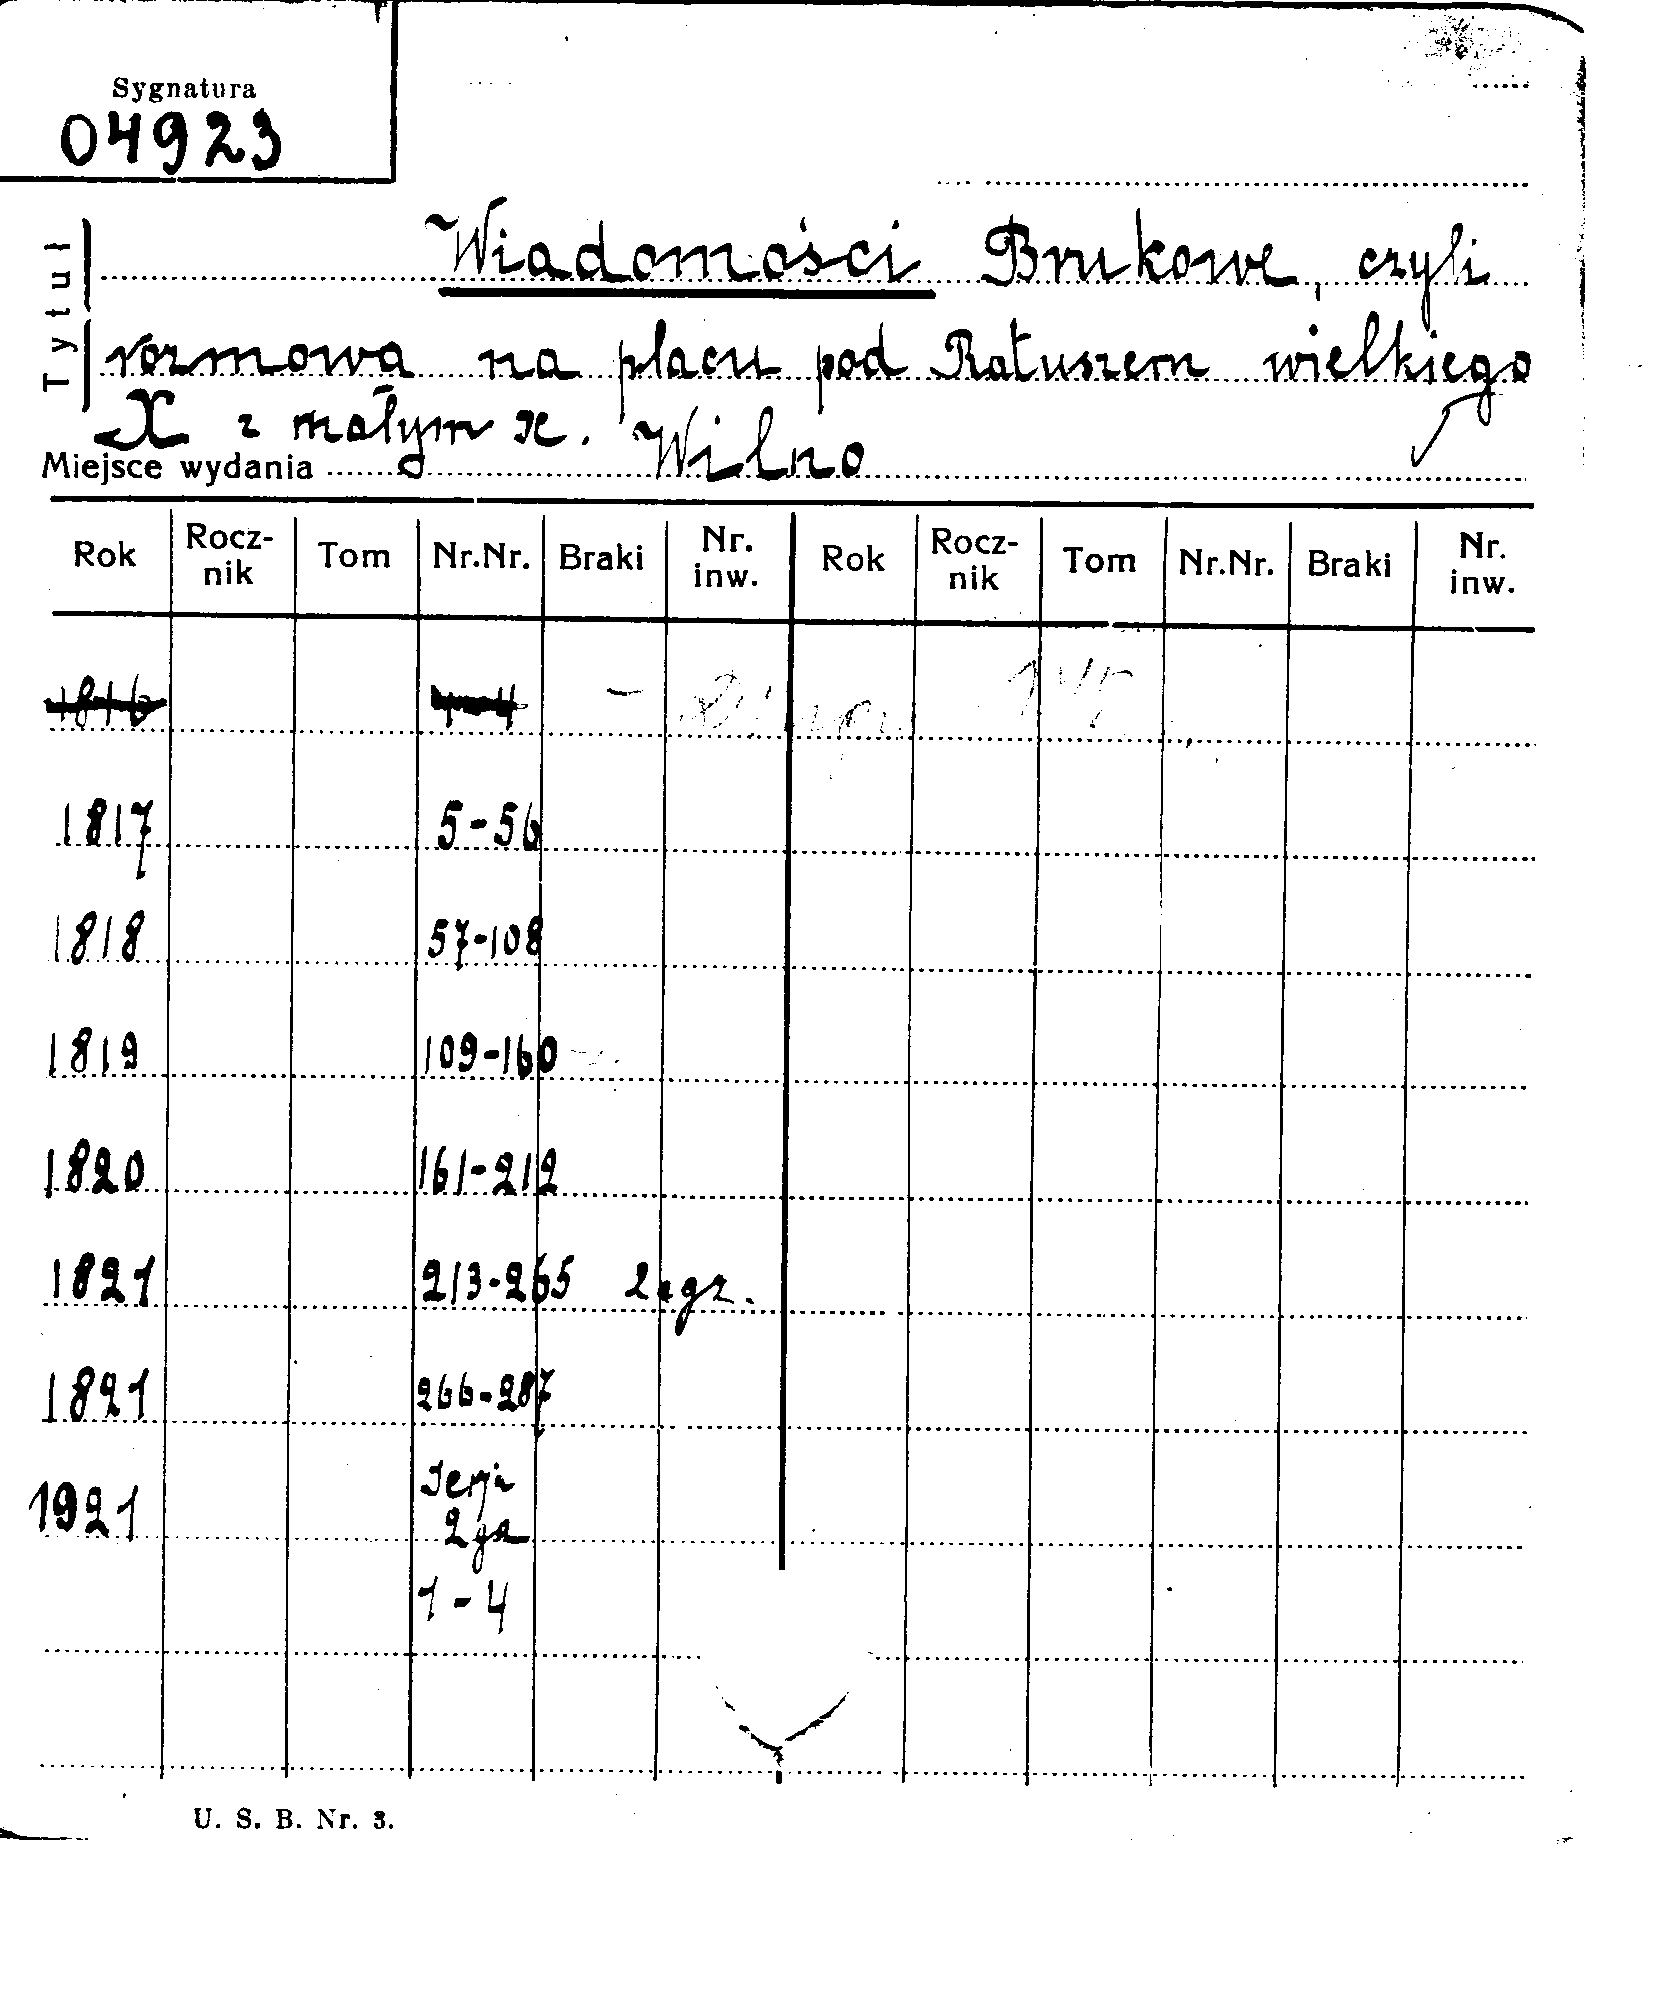 Sygnatura
04923
Tytuł
Wiadomości Brukowe, czyli
rozmowa na placu pod Ratuszem wielkiego
X z małym x. Wilno
Miejsce wydania
Rok Rocz-nik Tom Nr.Nr. Braki Nr. inw. Rok Rocz-nik Tom Nr.Nr. Braki Nr. inw.
1816 1-4 -
1817 5-56
1818 57-108
1819 109-160
1820 161-212
1821 213-265 2 egz.
1821 266-287
1921 Serja
2ga
1-4
U. S. B. Nr. 3.